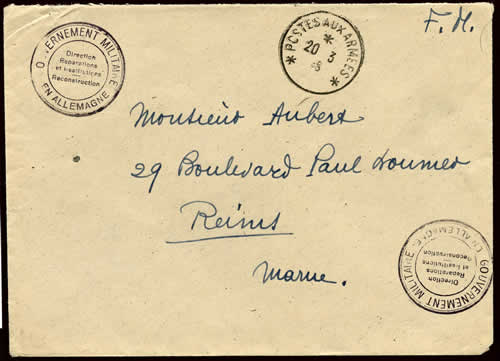 GOUVERNEMENT MILITAIRE
Direction
Reparations
et Restitutions
Reconstruction
EN ALLEMAGNE
* POSTES AUX ARMEES *
*
20 3
F. M.
Monsieur Aubert
29 Boulevard Paul Doumer
Reims
Marne.
GOUVERNEMENT MILITAIRE
Direction
Reparations
et Restitutions
Reconstruction
EN ALLEMAGNE